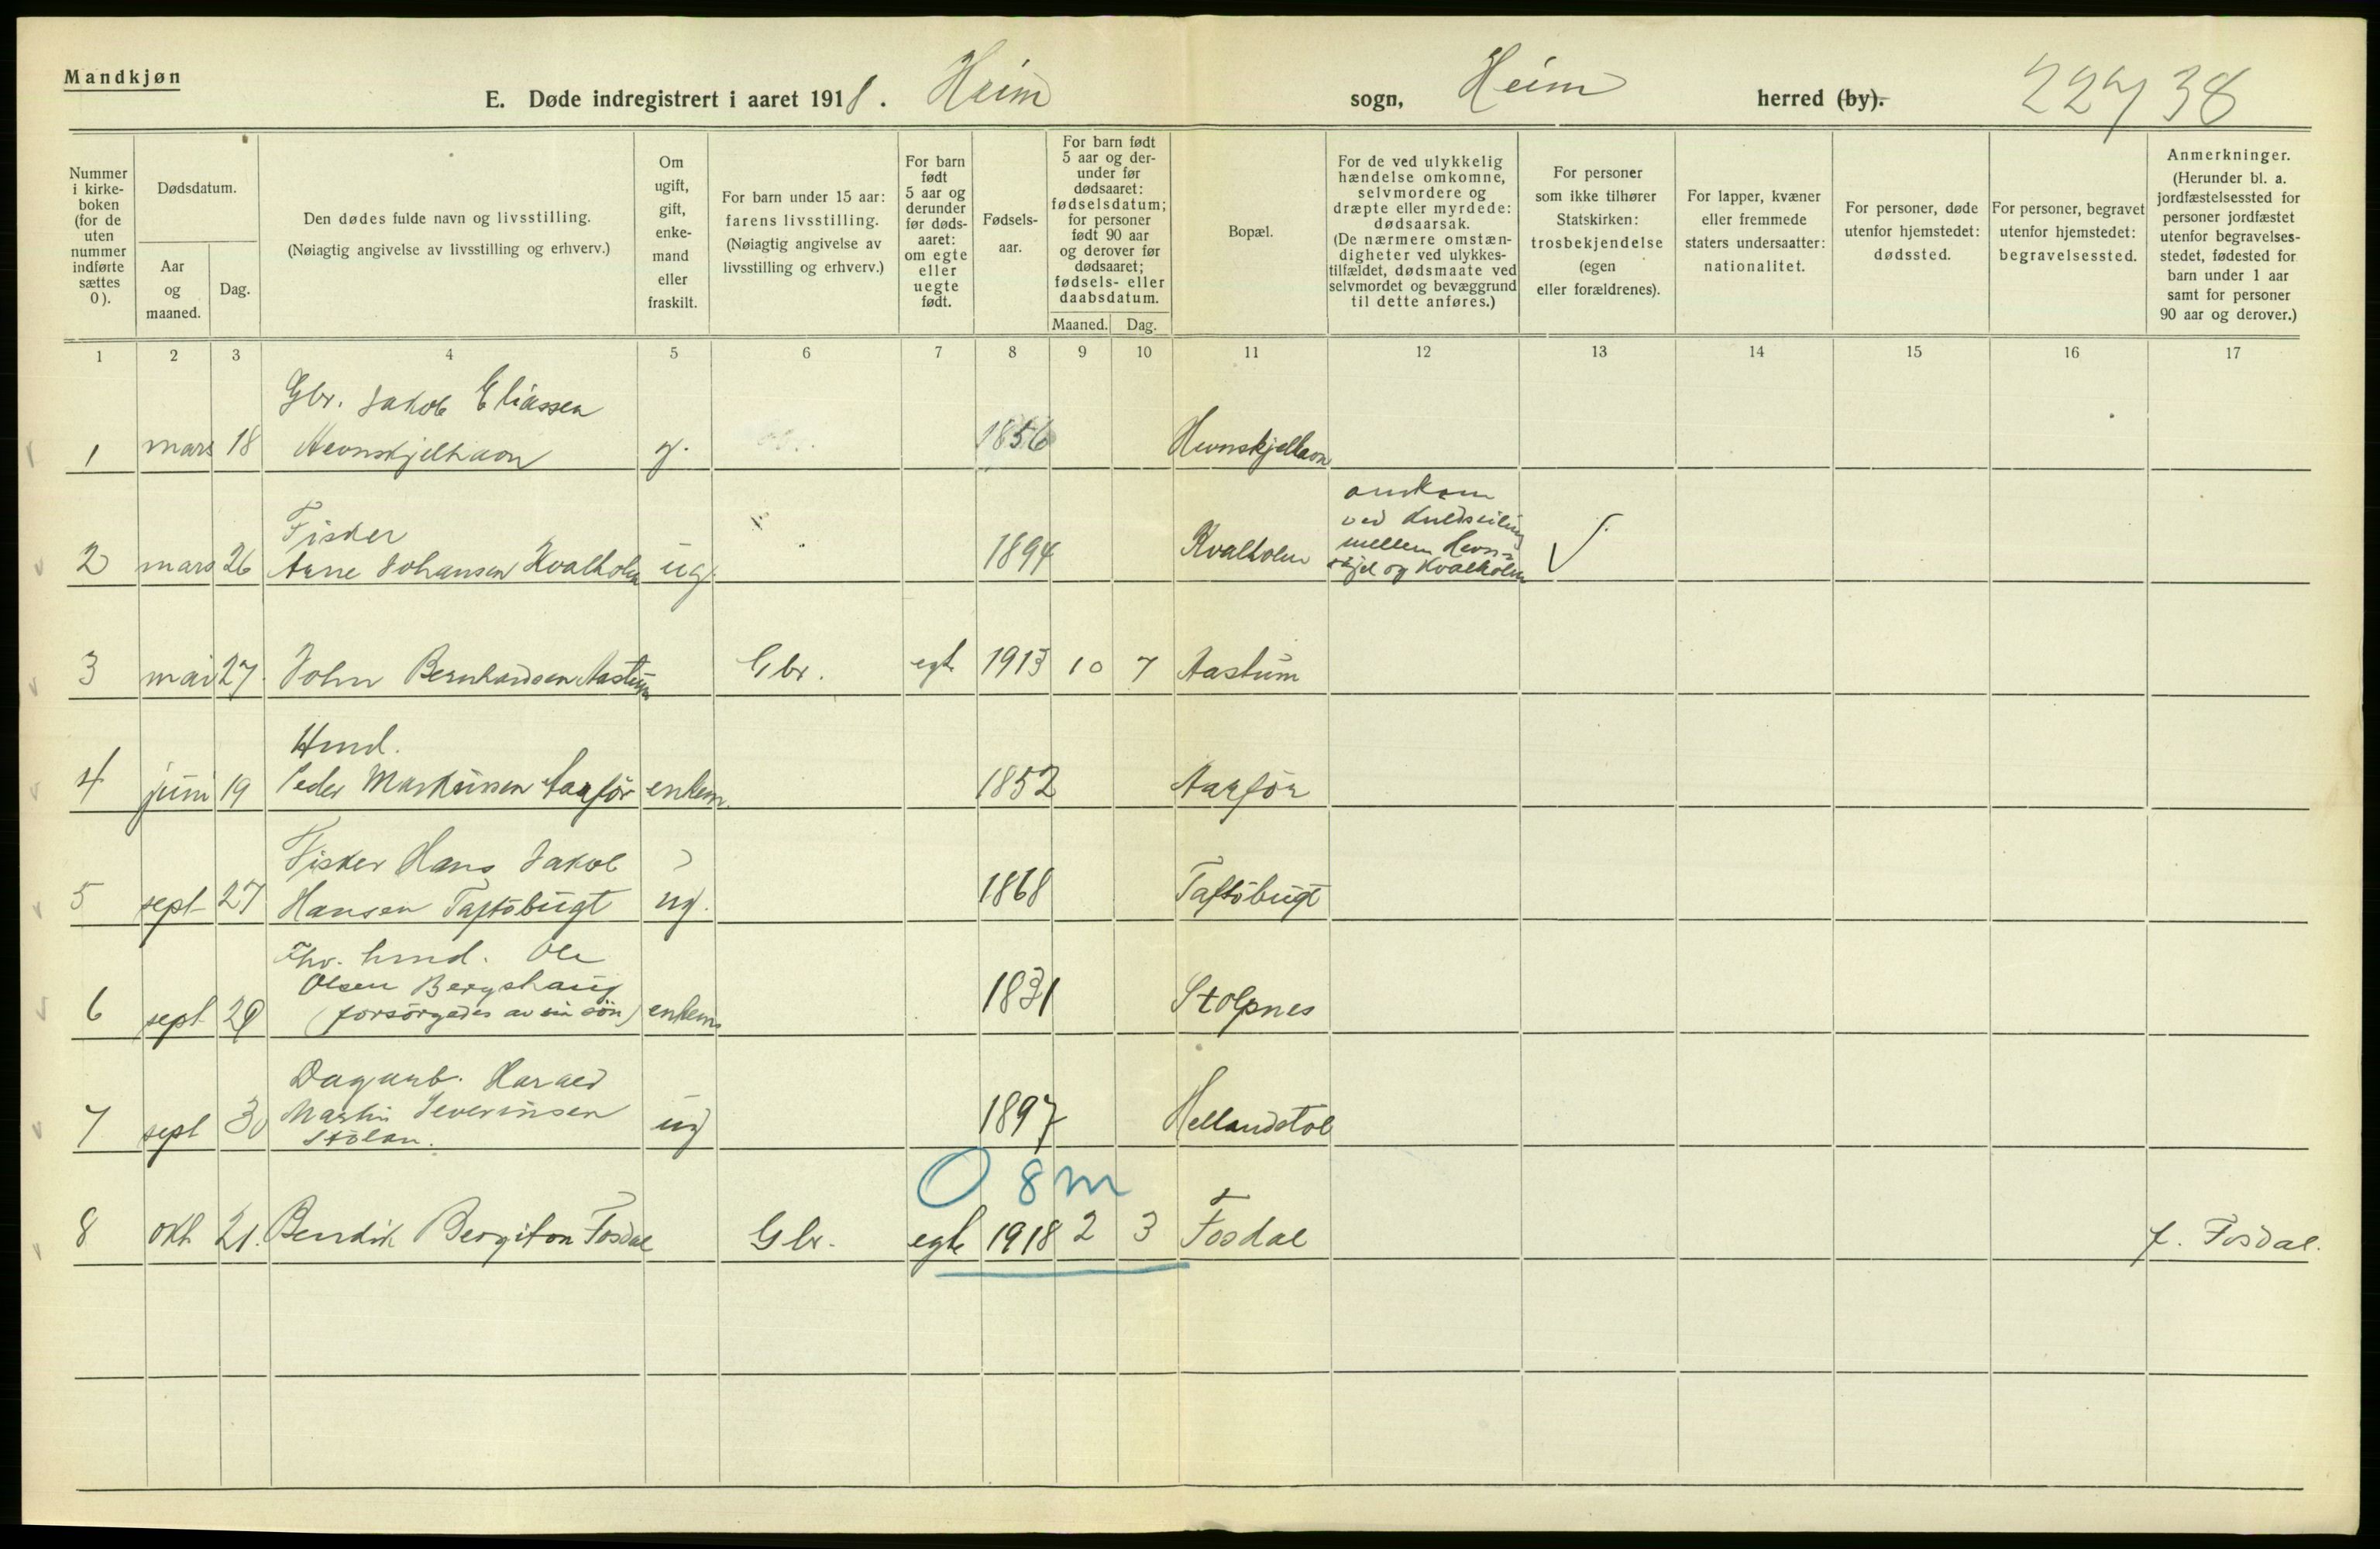 Mandkjøn
E. Døde indregistrert i aaret 1918. Heim sogn, Heim herred (by). 227 38
Nummer i kirke-boken (for de uten nummer indførte sættes 0).
Dødsdatum.
Aar og maaned.
Dag.
Den dødes fulde navn og livsstilling.
(Nøiagtig angivelse av livsstilling og erhverv.)
Om ugift, gift, enke-mand eller fraskilt.
For barn under 15 aar: farens livsstilling.
(Nøiagtig angivelse av livsstilling og erhverv.)
For barn født 5 aar og derunder før døds-aaret: om egte eller uegte født.
Fødsels-aar.
For barn født 5 aar og der-under før dødsaaret: fødselsdatum; for personer født 90 aar og derover før dødsaaret; fødsels- eller daabsdatum.
Maaned. Dag.
Bopæl.
For de ved ulykkelig hændelse omkomne, selvmordere og dræpte eller myrdede: dødsaarsak.
(De nærmere omstæn-digheter ved ulykkes-tilfældet, dødsmaate ved selvmordet og bevæggrund til dette anføres.)
For personer som ikke tilhører Statskirken: trosbekjendelse (egen eller forældrenes).
For lapper, kvæner eller fremmede staters undersaatter: nationalitet.
For personer, døde utenfor hjemstedet: dødssted.
For personer, begravet utenfor hjemstedet: begravelsessted.
Anmerkninger.
(Herunder bl. a. jordfæstelsessted for personer jordfæstet utenfor begravelses-stedet, fødested for barn under 1 aar samt for personer 90 aar og derover.)
1 2 3 4 5 6 7 8 9 10 11 12 13 14 15 16 17
Gbr. Jakob Eliassen
1 mars 18 Hevnskjelhavn g. 1856 Hevnskjelhavn
Fisker
2 mars 26 Arne Johansen Kvalholm ug. 1894 Kvalholm
omkom
ved kuldseiling
mellem Hevn-
skjel og Kvalholm
3 mai 27. John Bernhardsen Aastum Gbr. egte 1913 10 7 Aastum
Hmd.
4 juni 19 Peder Markussen Aarför enkem. 1852 Aarför
Fisker Hans Jakob
5 sept 27 Hansen Taftöbugt ug. 1868 Taftöbugt
Fhv. hmd. Ole
Olsen Bergshaug
6 sept 29 (forsörgedes av sin sön) enkem 1831 Stolpnes
Dagarb. Harald
Martin Severinsen
7 sept 30 Stölan. ug 1897 Hellandstöl
0 8m
8 okt 21. Bendik Bergiton Fosdal Gbr. egte 1918 2 3 Fosdal f. Fosdal.